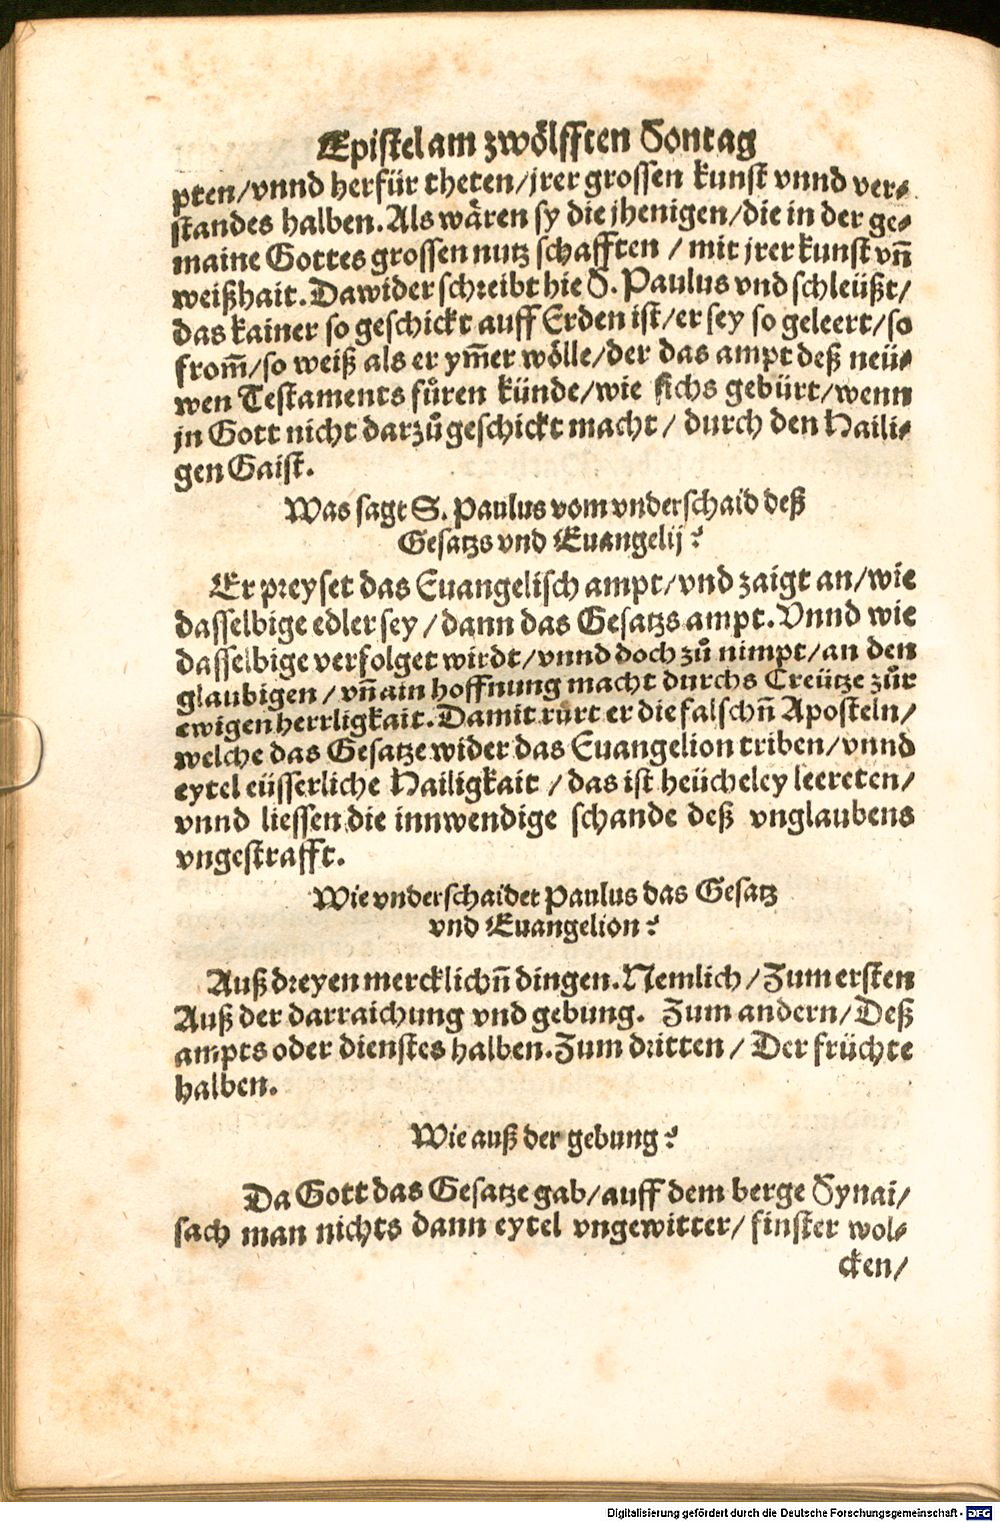 Epistel am zwölfften Sontag
pten/vnnd herfür theten/jrer grossen kunst vnnd ver⸗
standes halben. Als wären sy die jhenigen/die in der ge⸗
maine Gottes grossen nutz schafften / mit jrer kunst vn̄
weißhait. Dawider schreibt hie S. Paulus vnd schleüßt/
das kainer so geschickt auff Erden ist/er sey so geleert/so
from̄/so weiß als er ym̄er wölle/der das ampt deß neü⸗
wen Testaments fůren künde/wie sichs gebürt/wenn
jn Gott nicht darzů geschickt macht / durch den Haili⸗
gen Gaist.
Was sagt S. Paulus vom vnderschaid deß
Gesatzs vnd Euangelij?
Er preyset das Euangelisch ampt/vnd zaigt an/wie
dasselbige edler sey / dann das Gesatzs ampt. Vnnd wie
dasselbige verfolget wirdt/vnnd doch zů nimpt/an den
glaubigen / vn̄ ain hoffnung macht durchs Creütze zůr
ewigen herrligkait. Damit rürt er die falschn̄ Aposteln/
welche das Gesatze wider das Euangelion triben/vnnd
eytel eüsserliche Hailigkait / das ist heücheley leereten/
vnnd liessen die innwendige schande deß vnglaubens
vngestrafft.
Wie vnderschaidet Paulus das Gesatz
vnd Euangelion?
Auß dreyen mercklichn̄ dingen. Nemlich / Zum ersten
Auß der darraichung vnd gebung. Zum andern/ Deß
ampts oder dienstes halben. Zum dritten / Der früchte
halben.
Wie auß der gebung?
Da Gott das Gesatze gab/auff dem berge Synai/
sach man nichts dann eytel vngewitter/ finster wol⸗
cken/
Digitalisierung gefördert durch die Deutsche Forschungsgemeinschaft - DFG